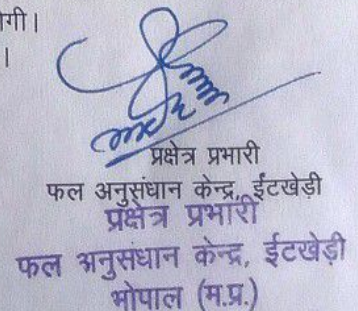 ोगी।
।
प्रक्षेत्र प्रभारी
फल अनुसंधान केन्द्र, ईंटखेड़ी
प्रक्षेत्र प्रभारी
फल अनुसंधान केन्द्र, ईटखेड़ी
भोपाल (म.प्र.)